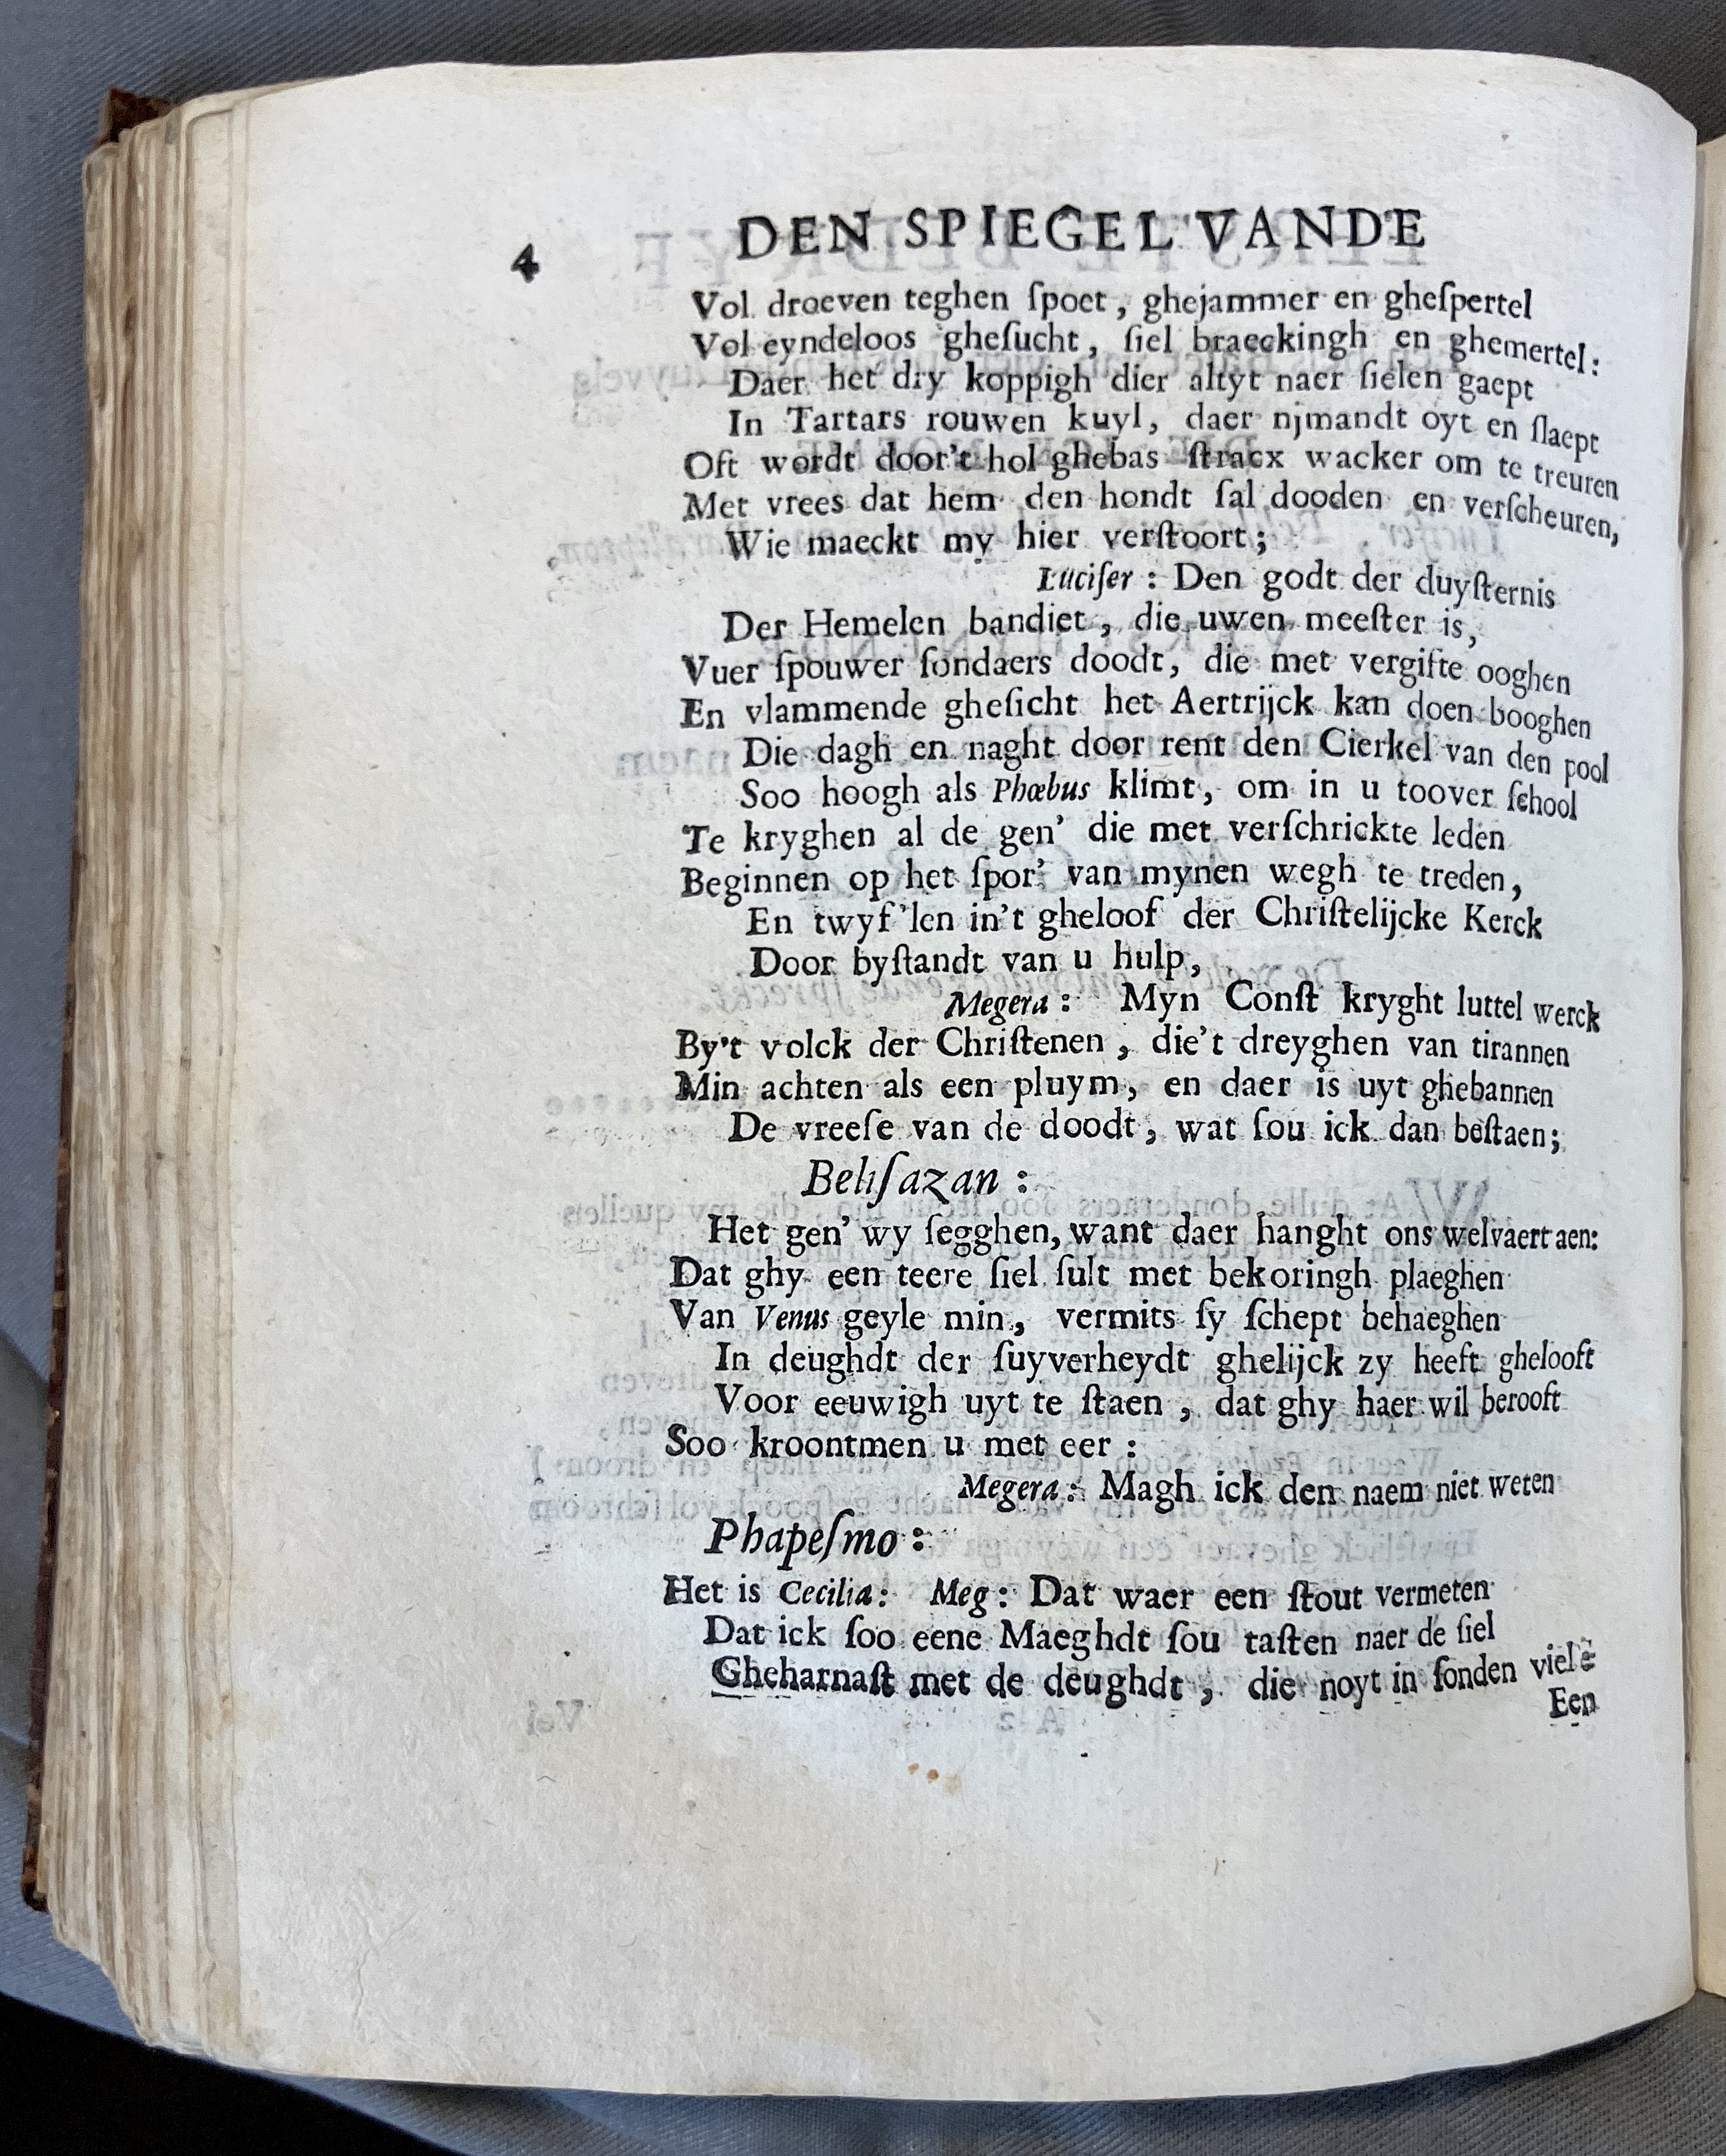 4 DEN SPIEGEL VANDE
Vol droeven teghen ſpoet, ghejammer en gheſpertel
Vol eyndeloos gheſucht, ſiel braeckingh en ghemertel:
Daer het dry koppigh dier altyt naer ſielen gaept
In Tartars rouwen kuyl, daer njmandt oyt en ſlaept
Oft wordt door't hol ghebas ſtracx wacker om te treuren
Met vrees dat hem den hondt ſal dooden en verſcheuren,
Wie maeckt my hier verſtoort;
Lucifer: Den godt der duyſternis
Der Hemelen bandiet, die uwen meeſter is,
Vuer ſpouwer ſondaers doodt, die met vergifte ooghen
En vlammende gheſicht het Aertrijck kan doen booghen
Die dagh en naght door rent den Cierkel van den pool
Soo hoogh als Phœbus klimt, om in u toover ſchool
Te kryghen al de gen' die met verſchrickte leden
Beginnen op het ſpor' van mynen wegh te treden,
En twyf'len in't gheloof der Chriſtelijcke Kerck
Door byſtandt van u hulp,
Megera: Myn Conſt kryght luttel werck
By't volck der Chriſtenen, die't dreyghen van tirannen
Min achten als een pluym, en daer is uyt ghebannen
De vreeſe van de doodt, wat ſou ick dan beſtaen;
Belſazan:
Het gen' wy ſegghen, want daer hanght ons welvaert aen:
Dat ghy een teere ſiel ſult met bekoringh plaeghen
Van Venus geyle min, vermits ſy ſchept behaeghen
In deughdt der ſuyverheydt ghelijck zy heeft ghelooft
Voor eeuwigh uyt te ſtaen, dat ghy haer wil berooft
Soo kroontmen u met eer:
Megera: Magh ick den naem niet weten
Phapeſmo:
Het is Cecilia: Meg: Dat waer een ſtout vermeten
Dat ick ſoo eene Maeghdt ſou taſten naer de ſiel
Gheharnaſt met de deughdt, die noyt in ſonden viel
Een